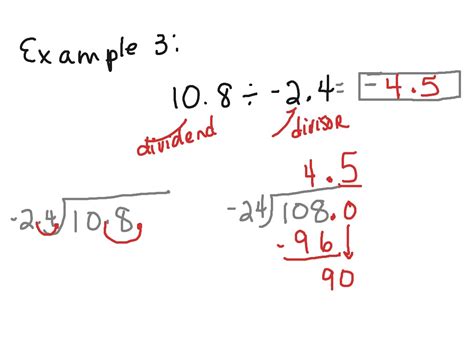 Example 3:
10.8 ÷ -2.4 = -4.5
dividend divisor
4.5
-2.4)10.8 -24)108.0
-96↓
90